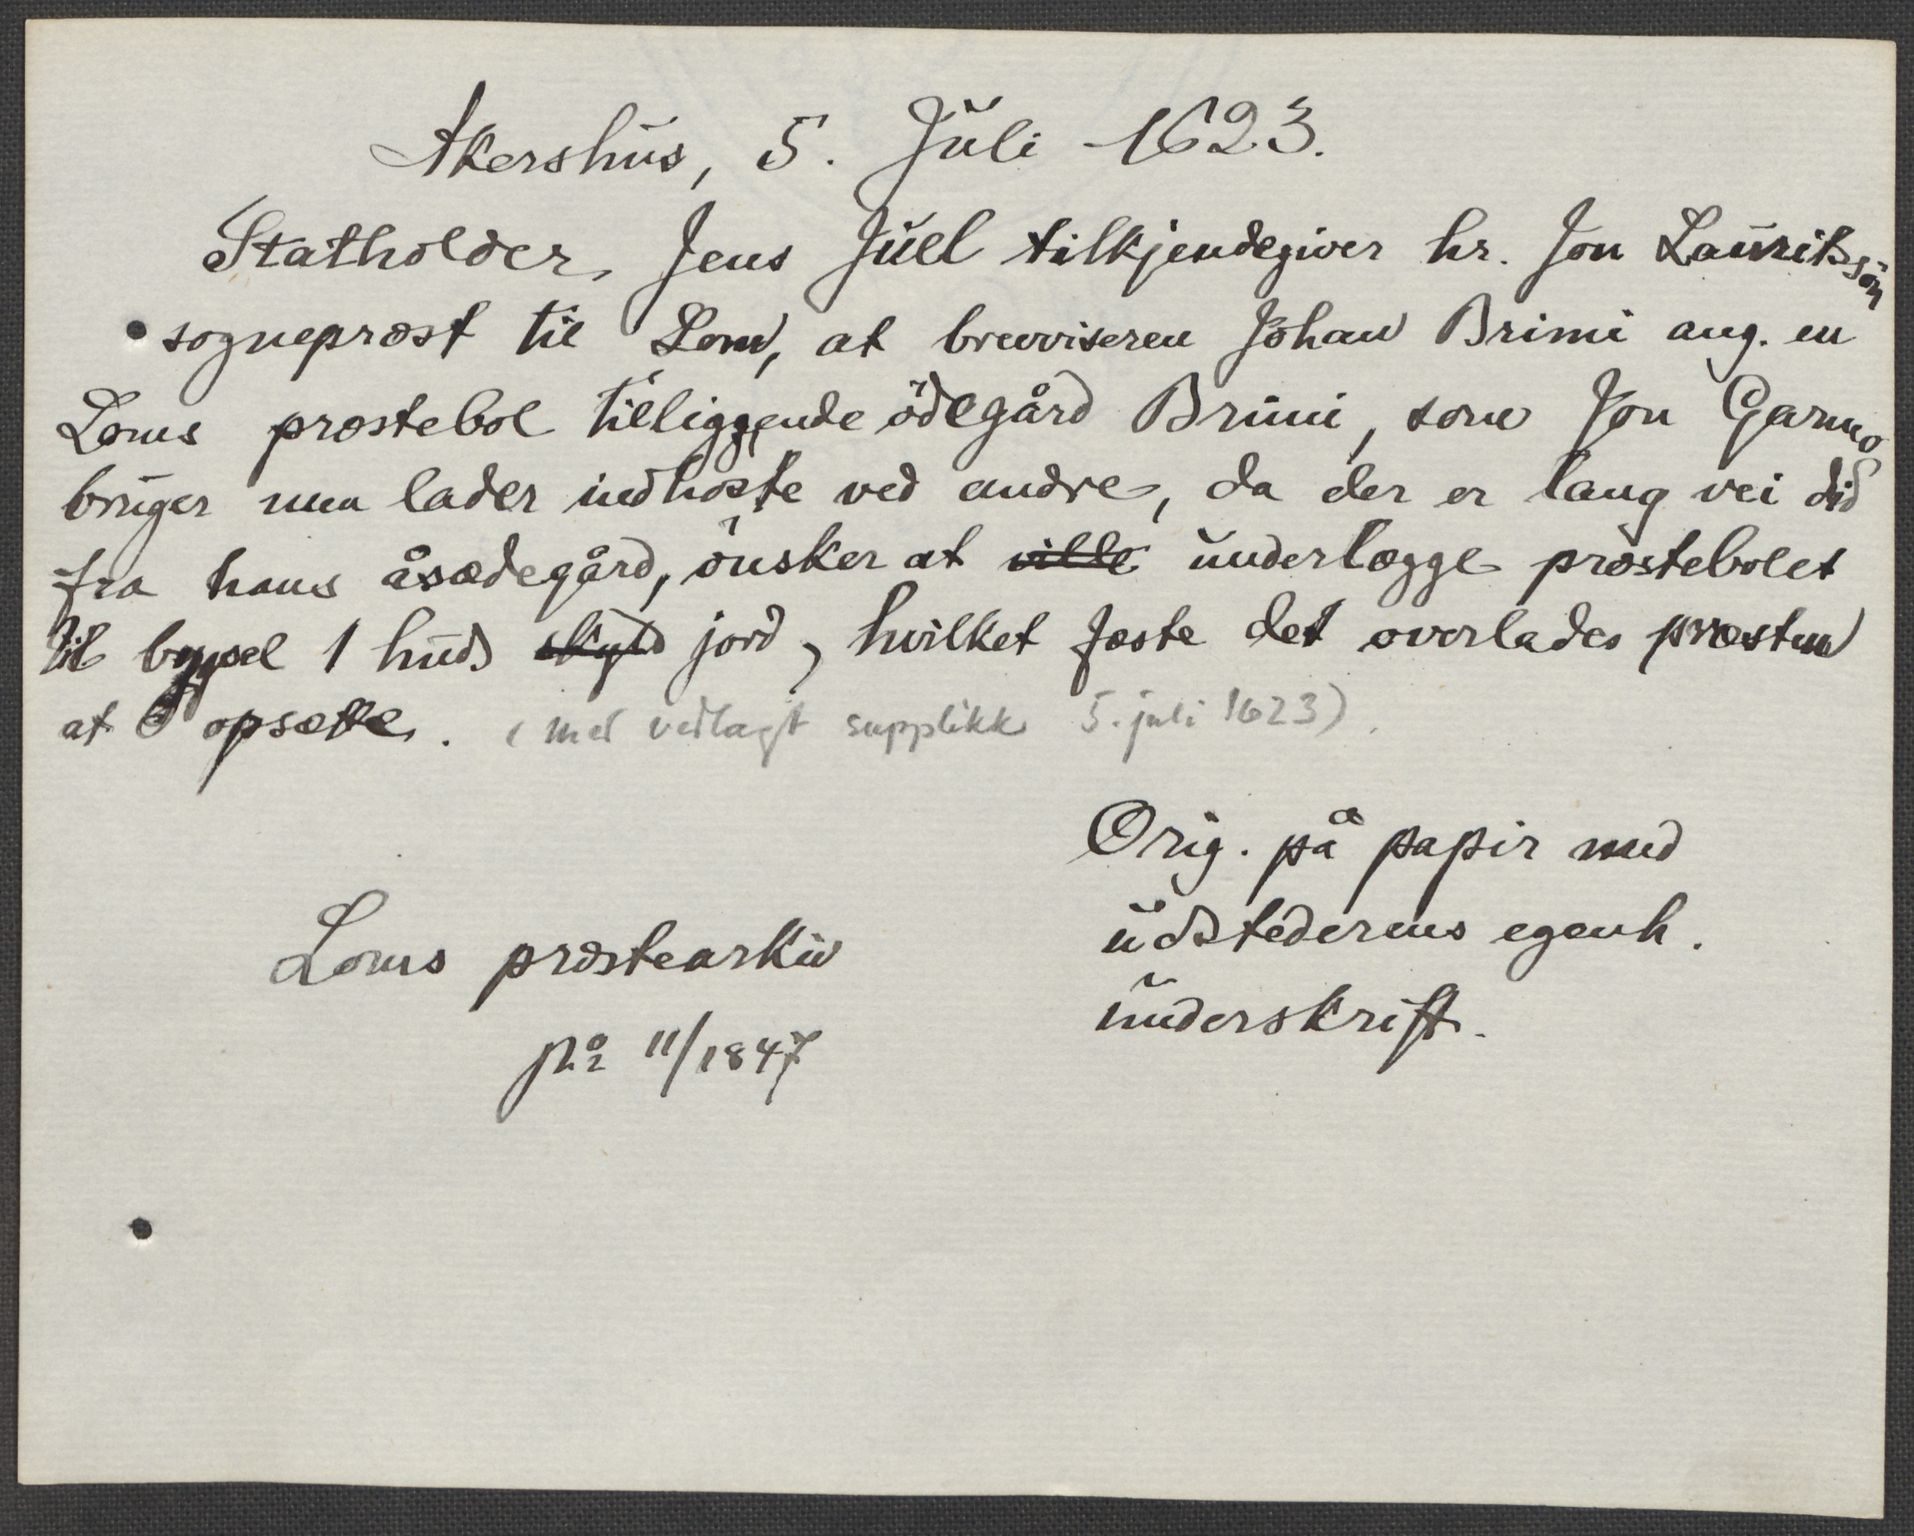 Akershus, 5. Juli 1623.
Statholder Jens Juel tilkjendegiver hr. Jon Lauritssön
sogneprest til Lom, at brevviseren Johan Brimi ang. en
Loms prestebol tilliggende ödegård Brimi, som Jon Garmo
bruger men lader indhöste ved andre, da der er lang vei did
fra hans åsædegård, önsker at ville underlægge prestebolet
til bygsel 1 huds skyld jord, hvilket feste det overlades præsten
at opsætte. (med vedlagt supplikk 5. juli 1623).
Orig. på papir med
udstederens egenh.
underskrift.
Loms prestearkiv
på 11/1847